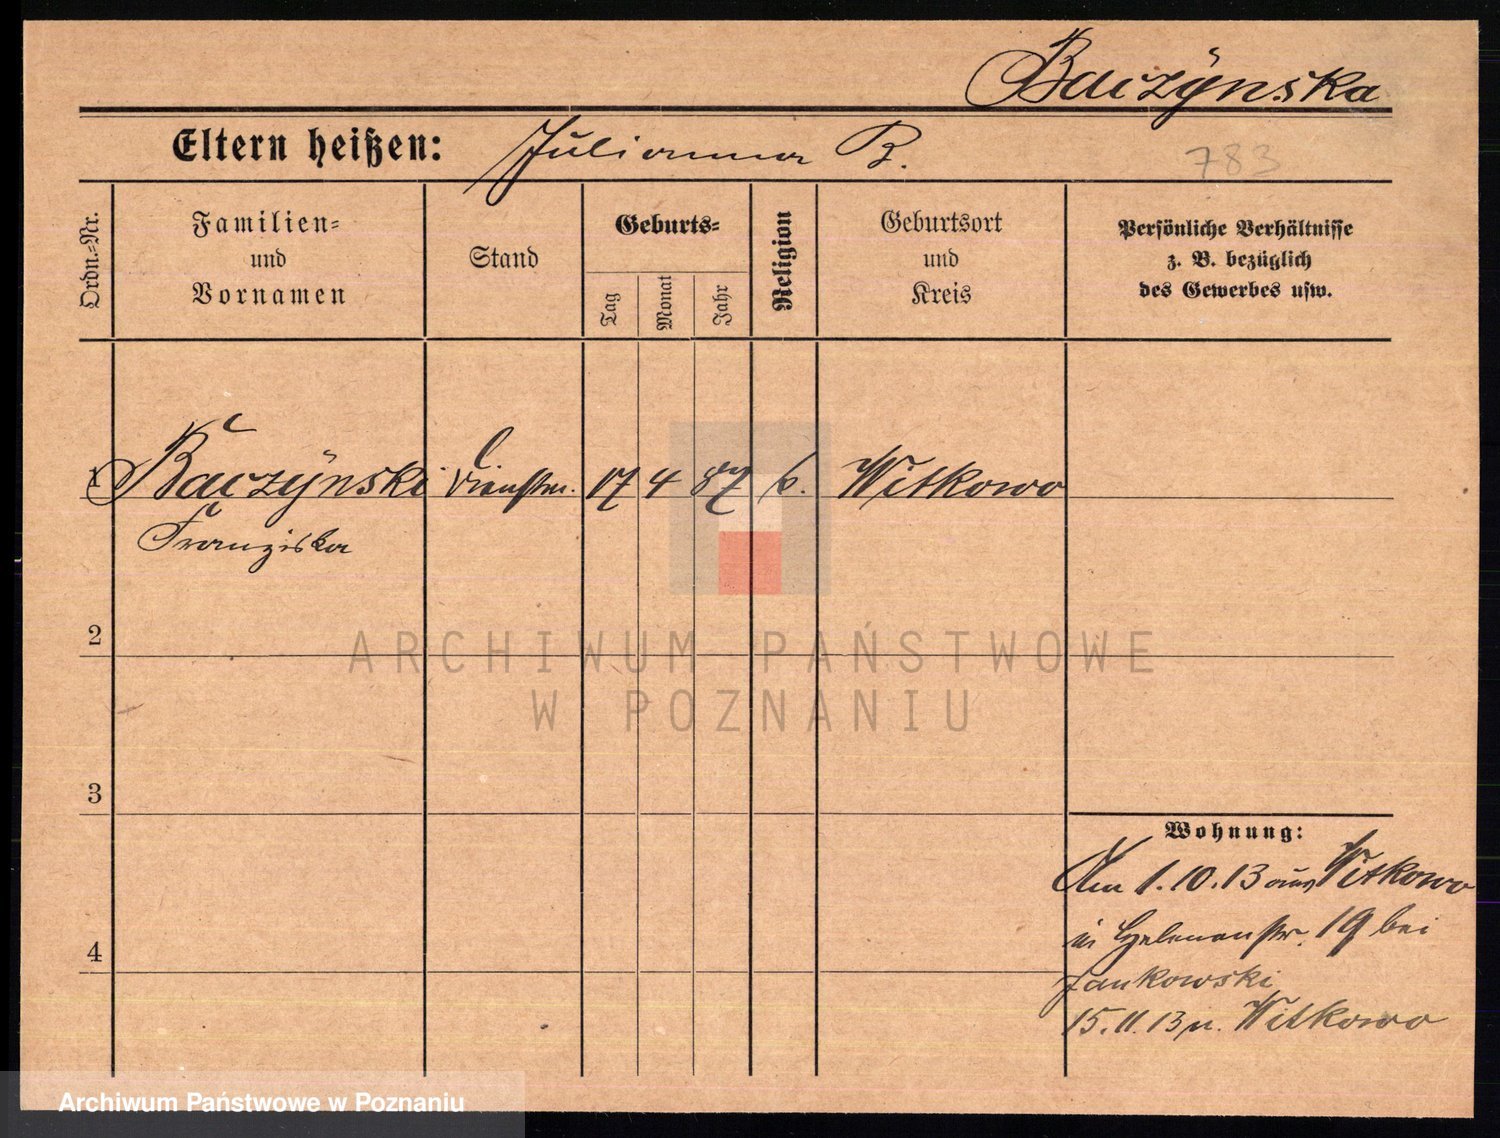 Baczÿnska
Eltern heißen: Julianna B.
783
Ordn.=Nr.
Familien=
und
Vornamen
Stand
Geburts=
Tag
Monat
Jahr
Religion
Geburtsort
und
Kreis
Persönliche Verhältnisse
z. B. bezüglich
des Gewerbes usw.
1 Baczÿnski 17 4 87 Witkowo
Franziska
2
3
4
Wohnung:
Am 1.10.13 aus Witkowo
in Helenenstr. 19 bei
Jankowski
15.11.13 n. Witkowo
ARCHIWUM PAŃSTWOWE
W POZNANIU
Archiwum Państwowe w Poznaniu